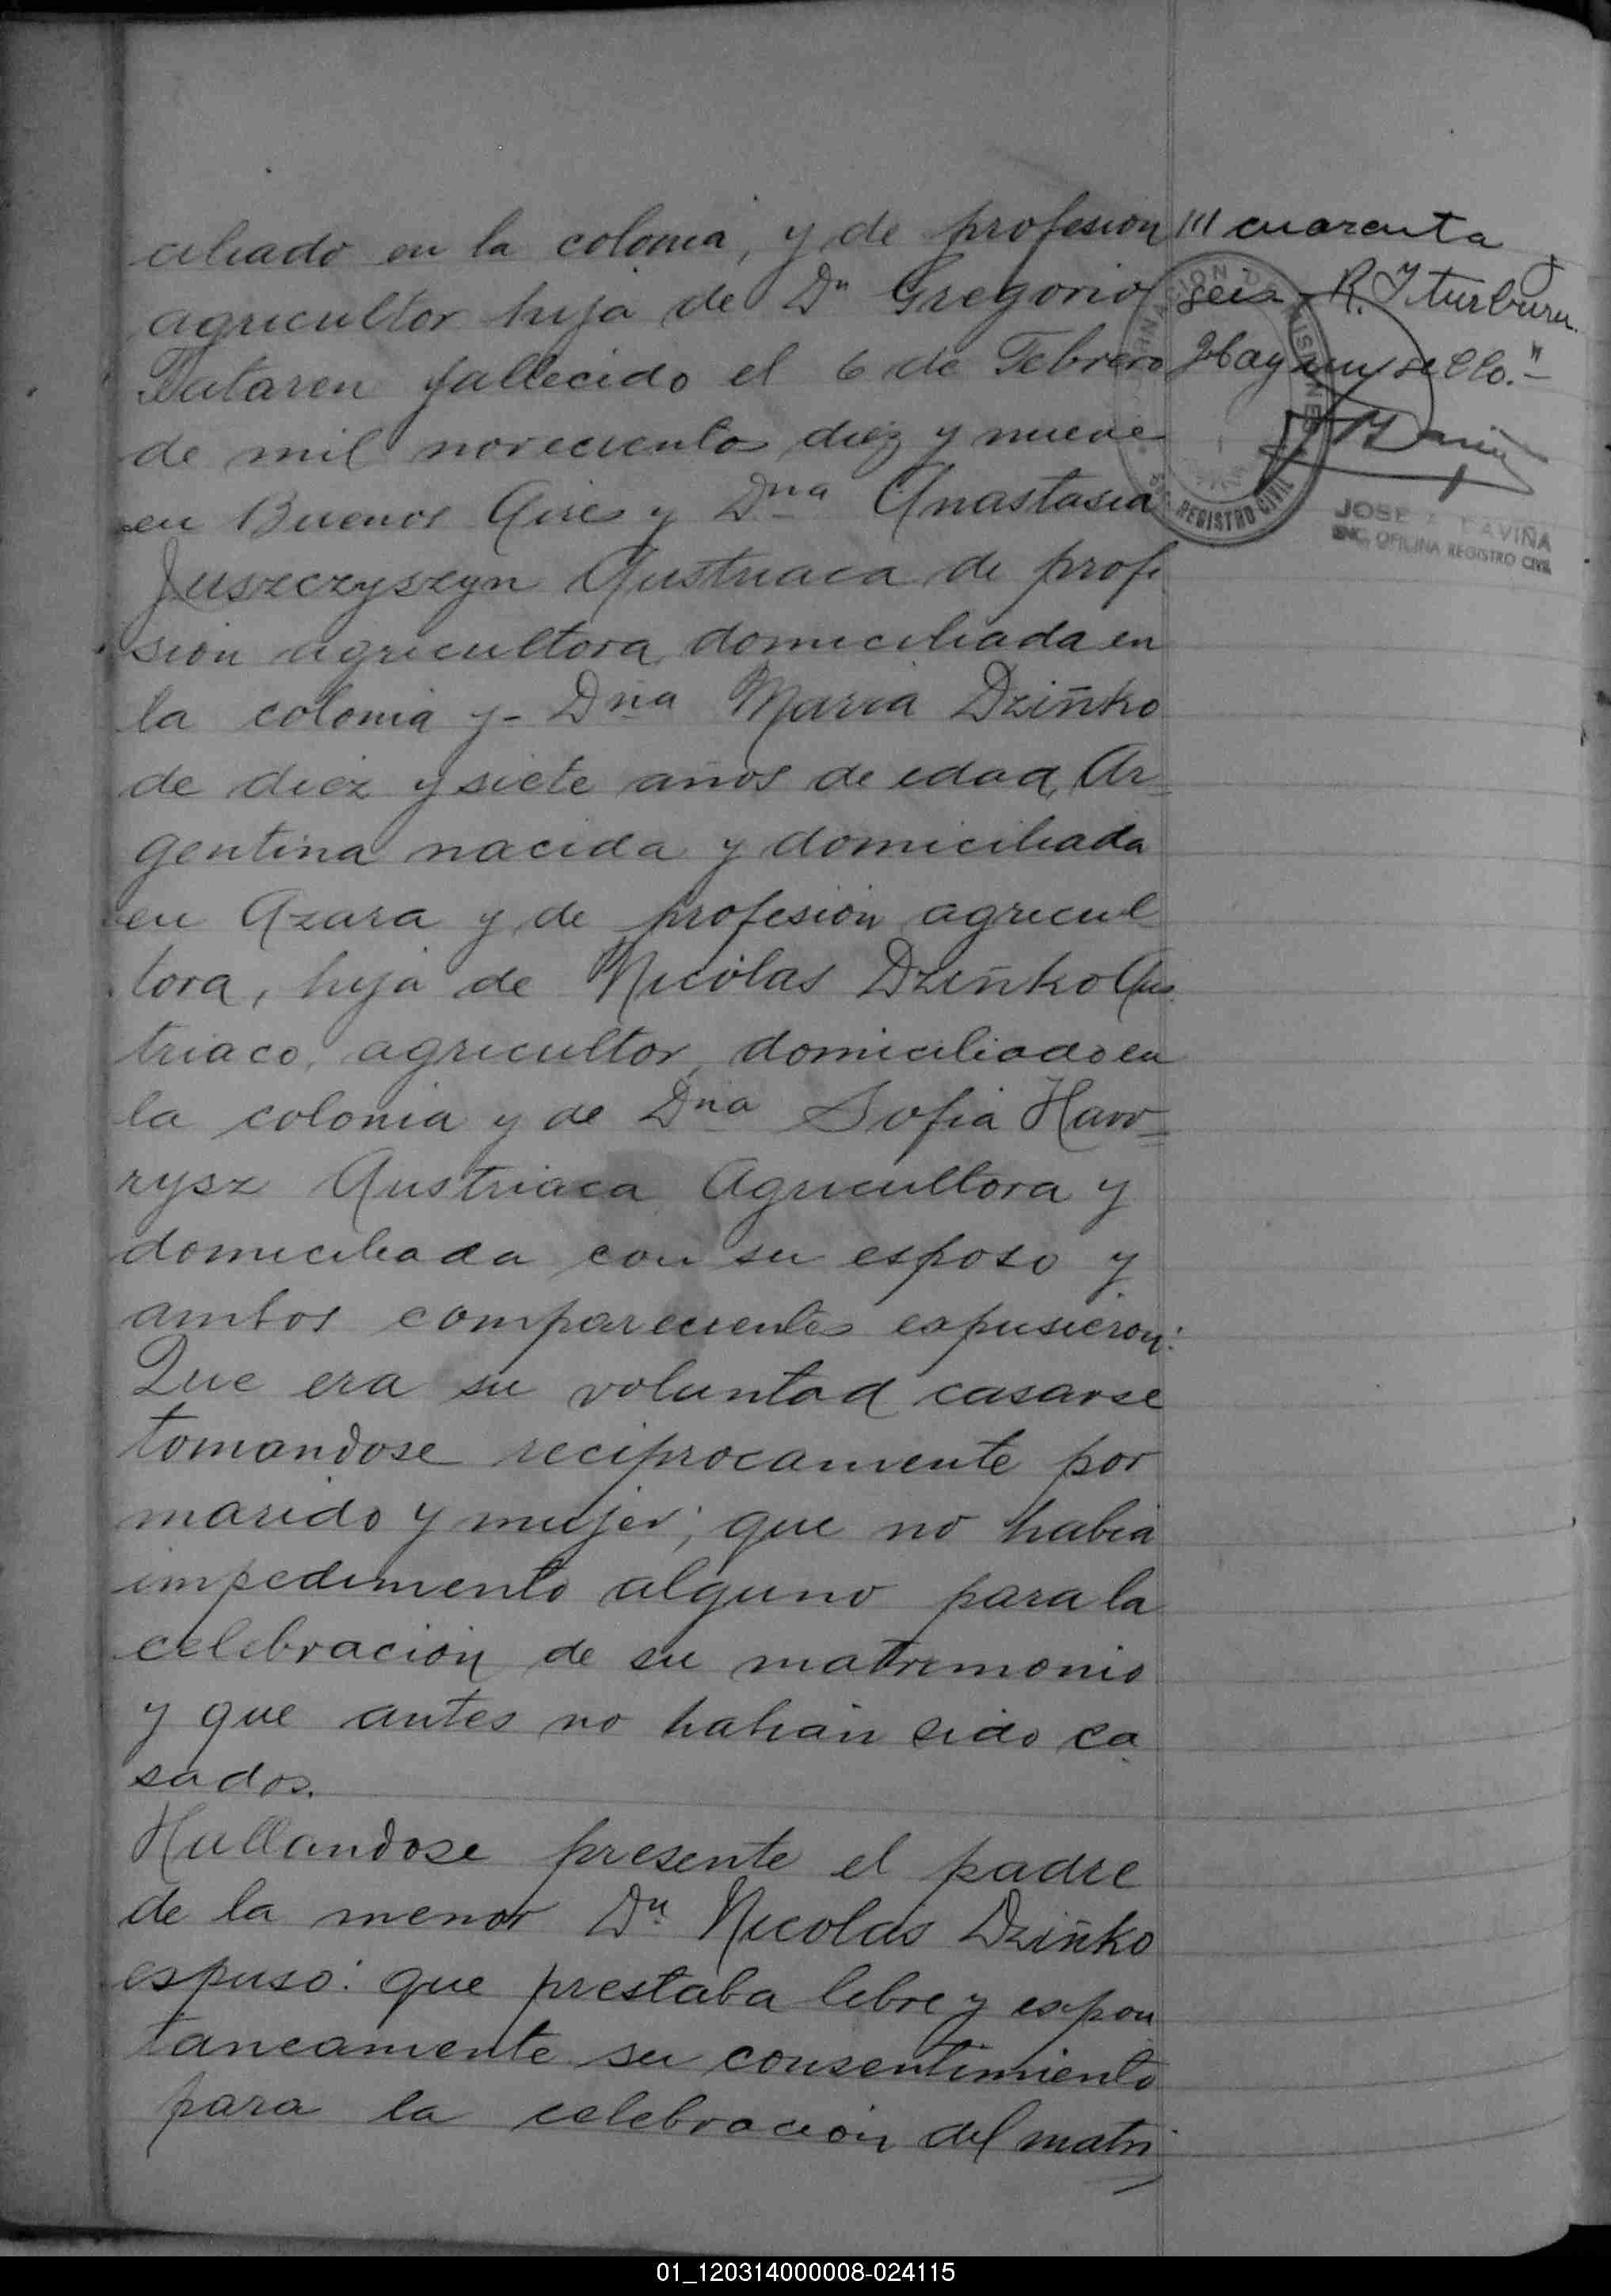 ciliado en la colonia, y de profesion
agricultor hijo de Dn Gregorio
fallecido el 6 de Febrero
de mil novecientos diez y nueve
en Buenos Aires y Dna Anastasia
Juszczyszyn Austriaca de profe
sion agricultora domiciliada en
la colonia y - Dña Maria Dziñko
de diez y siete años de edad, Ar=
gentina nacida y domiciliada
en Azara y de profesión agricul
tora, hija de Nicolas Dziñko Aus
triaco, agricultor, domiciliado en
la colonia y de Dña Sofia Haw=
rysz Austriaca Agricultora y
domiciliada con su esposo y
ambos comparecientes expusieron:
Que era su voluntad casarse
tomandose reciprocamente por
marido y mujer; que no habia
impedimento alguno para la
celebración de su matrimonio
y que antes no habian sido ca
sados.
Hallandose presente el padre
de la menor Dn Nicolas Dziñko
espuso: que prestaba libre y espon
taneamente su consentimiento
para la celebración del matri
/// cuarenta
seis R. Iturburu
Hay un sello."-
REGISTRO CIVIL
JOSE A. DAVIÑA
ENC. OFICINA REGISTRO CIVIL
01_120314000008-024115